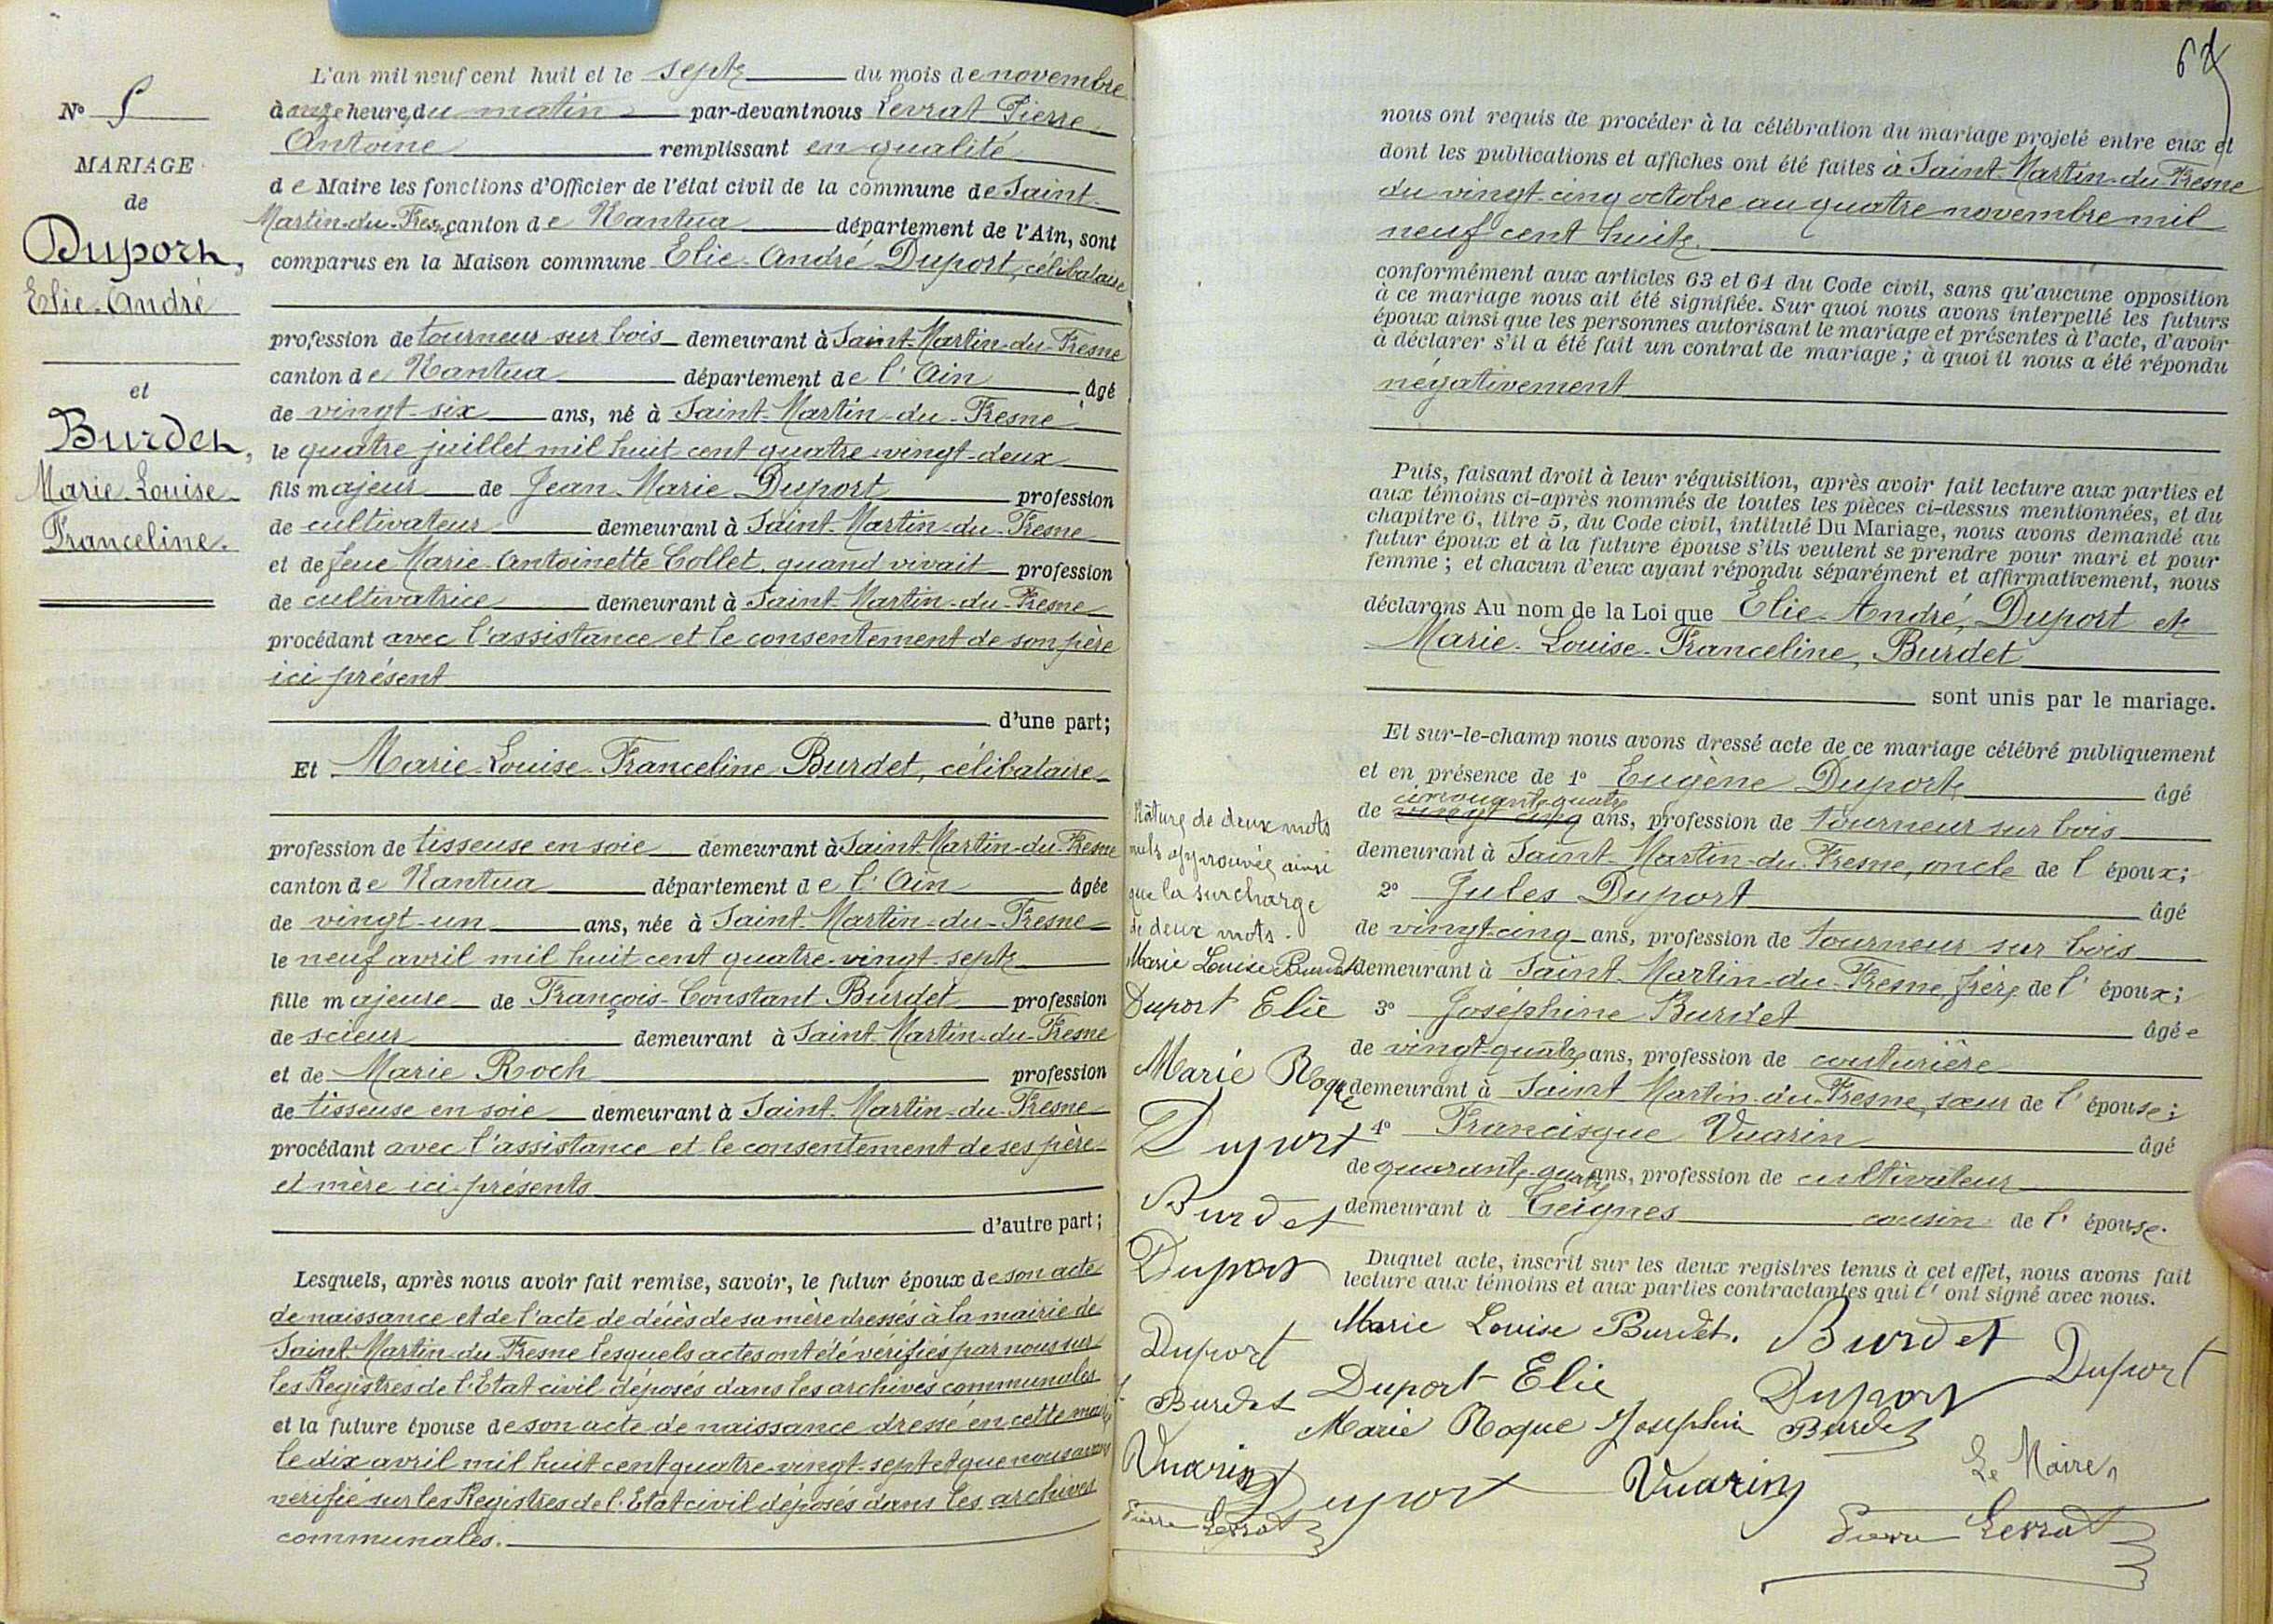 N° 5
MARIAGE
de
Duport,
Elie-André
et
Burdet,
Marie-Louise
Franceline.
L'an mil neuf cent huit et le sept du mois de novembre
à onze heures du matin par-devant nous Levrat Pierre
Antoine remplissant en qualité
de Maire les fonctions d'Officier de l'état civil de la commune de Saint-
Martin-du-Fresne canton de Nantua département de l'Ain, sont
comparus en la Maison commune Elie-André Duport, célibataire
profession de tourneur sur bois demeurant à Saint-Martin-du-Fresne
canton de Nantua département de l'Ain âgé
de vingt-six ans, né à Saint-Martin-du-Fresne
le quatre juillet mil huit cent quatre-vingt-deux
fils majeur de Jean-Marie Duport profession
de cultivateur demeurant à Saint-Martin-du-Fresne
et de feue Marie-Antoinette Collet, quand vivait profession
de cultivatrice demeurant à Saint-Martin-du-Fresne
procédant avec l'assistance et le consentement de son père
ici présent
d'une part;
Et Marie-Louise-Franceline Burdet, célibataire
profession de tisseuse en soie demeurant à Saint-Martin-du-Fresne
canton de Nantua département de l'Ain âgée
de vingt-un ans, née à Saint-Martin-du-Fresne
le neuf avril mil huit cent quatre-vingt-sept
fille majeure de François-Constant Burdet profession
de scieur demeurant à Saint-Martin-du-Fresne
et de Marie Roch profession
de tisseuse en soie demeurant à Saint-Martin-du-Fresne
procédant avec l'assistance et le consentement de ses père
et mère ici présents
d'autre part;
Lesquels, après nous avoir fait remise, savoir, le futur époux de son acte
de naissance et de l'acte de décès de sa mère dressés à la mairie de
Saint-Martin-du-Fresne lesquels actes ont été vérifiés par nous sur
les Registres de l'Etat civil déposés dans les archives communales
et la future épouse de son acte de naissance dressé en cette mairie
le dix avril mil huit cent quatre-vingt-sept et que nous avons
vérifié sur les Registres de l'Etat civil déposés dans les archives
communales.
nous ont requis de procéder à la célébration du mariage projeté entre eux et
dont les publications et affiches ont été faites à Saint-Martin-du-Fresne
du vingt-cinq octobre au quatre novembre mil
neuf cent huit.
conformément aux articles 63 et 64 du Code civil, sans qu'aucune opposition
à ce mariage nous ait été signifiée. Sur quoi nous avons interpellé les futurs
époux ainsi que les personnes autorisant le mariage et présentes à l'acte, d'avoir
à déclarer s'il a été fait un contrat de mariage; à quoi il nous a été répondu
négativement
Puis, faisant droit à leur réquisition, après avoir fait lecture aux parties et
aux témoins ci-après nommés de toutes les pièces ci-dessus mentionnées, et du
chapitre 6, titre 5, du Code civil, intitulé Du Mariage, nous avons demandé au
futur époux et à la future épouse s'ils veulent se prendre pour mari et pour
femme; et chacun d'eux ayant répondu séparément et affirmativement, nous
déclarons Au nom de la Loi que Elie-André, Duport et
Marie-Louise-Franceline, Burdet
sont unis par le mariage.
Et sur-le-champ nous avons dressé acte de ce mariage célébré publiquement
et en présence de 1° Eugène Duport âgé
cinquante-quatre
de vingt cinq ans, profession de tourneur sur bois
demeurant à Saint-Martin-du-Fresne, oncle de l'époux;
2° Jules Duport âgé
de vingt-cinq ans, profession de tourneur sur bois
demeurant à Saint-Martin-du-Fresne, frère de l'époux;
3° Joséphine Burdet âgée
de vingt-quatre ans, profession de couturière
demeurant à Saint Martin-du-Fresne, sœur de l'épouse;
4° Francisque Vuarin âgé
de quarante-quatre ans, profession de cultivateur
demeurant à Ceignes cousin de l'épouse.
Duquel acte, inscrit sur les deux registres tenus à cet effet, nous avons fait
lecture aux témoins et aux parties contractantes qui l'ont signé avec nous.
Marie Louise Burdet. Burdet
Duport Elie Duport Duport
Marie Roque Joséphin Burdet
Duport Vuarin Le Maire,
Pierre Levrat
Râture de deux mots
nuls approuvée ainsi
que la surcharge
de deux mots.
Marie Louise Burdet
Duport Elie
Marie Roque
Duport
Burdet
Duport
Duport
Burdet
Vuarin
Pierre Levrat